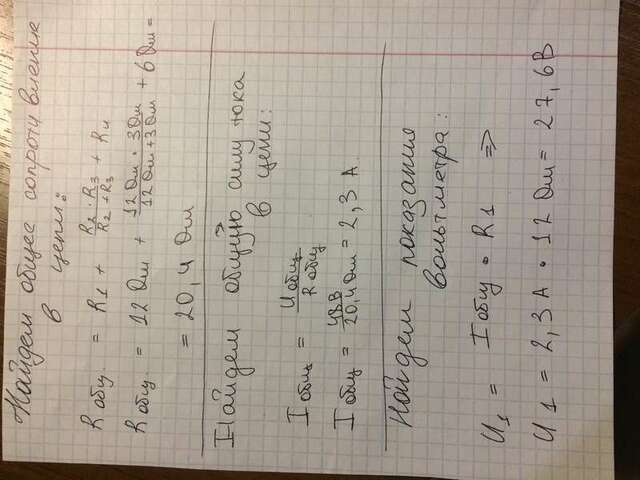 Найдем общее сопротивление
в цепи:
R общ. = R1 + R2 · R3 / R2 + R3 + R4
R общ. = 12 Ом + 12 Ом · 3 Ом / 12 Ом + 3 Ом + 6 Ом =
= 20,4 Ом
Найдем общую силу тока
в цепи:
I общ = U общ / R общ
I общ = 48В / 20,4 Ом = 2,3 А
Найдем показания
вольтметра:
U1 = I общ · R1 ⇒
U1 = 2,3 А · 12 Ом = 27,6 В